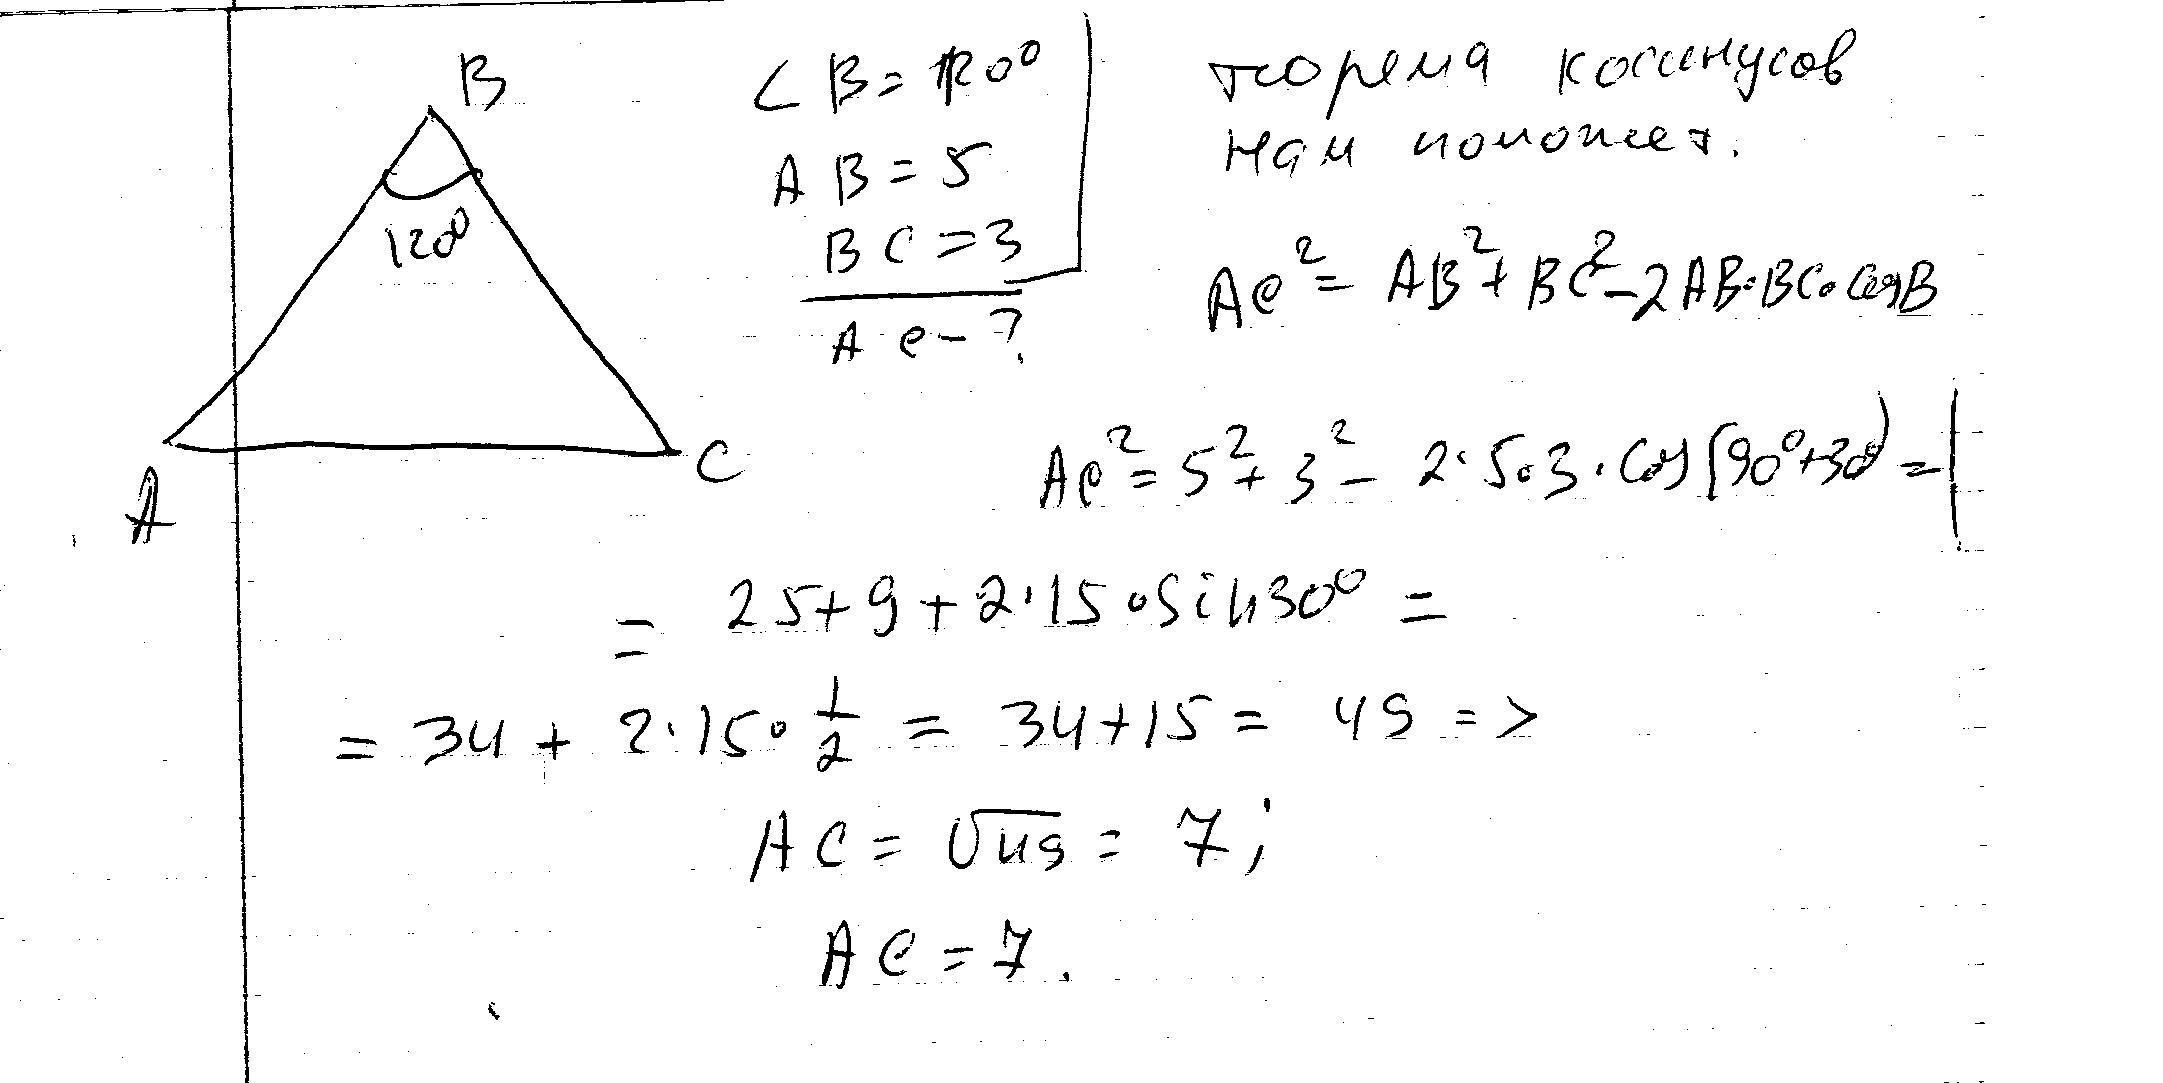 B
120°
A
C
∠B=120°
AB=5
BC=3
AC-?
теорема косинусов
нам поможет.
AC²=AB²+BC²-2AB·BC·cosB
AC²=5²+3²-2·5·3·cos(90°+30°)=
=25+9+2·15·sin30°=
=34+2·15·1/2=34+15=49=>
AC=√49=7;
AC=7.